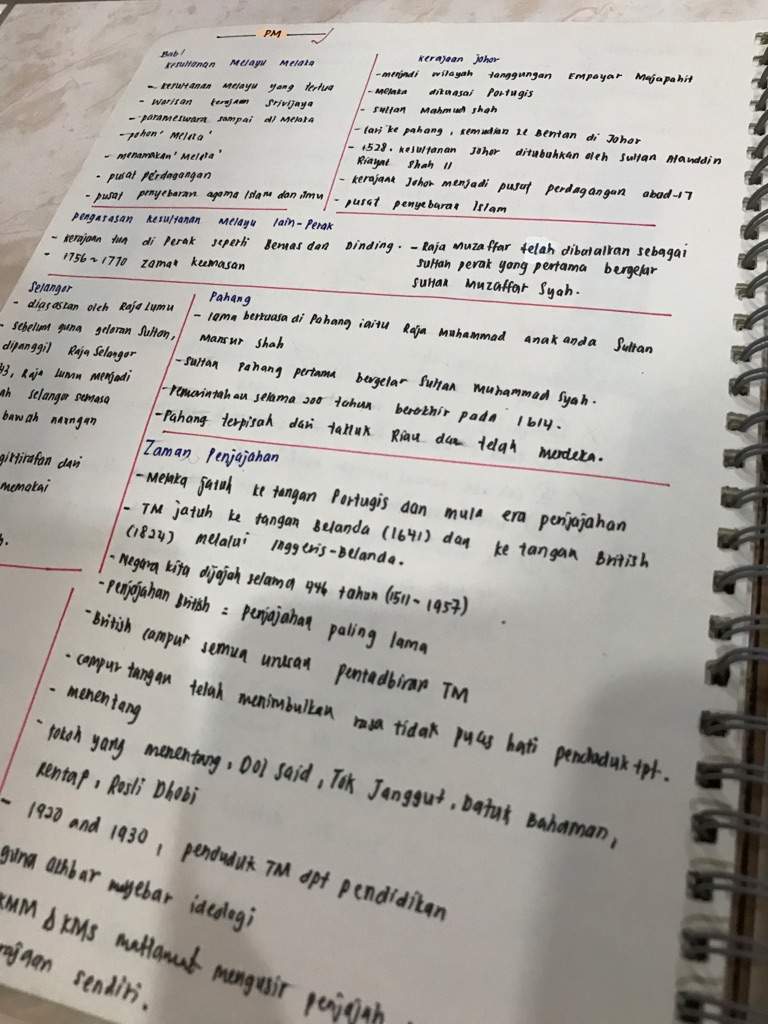 PM
Bab 1
Kesultanan Melayu Melaka
- Kesultanan Melayu yang tertua
- Warisan kerajaan Srivijaya
- Parameswara sampai di Melaka
- pohon 'Melaka'
- menamakan 'Melaka'
- pusat perdagangan
- pusat penyebaran agama Islam dan ilmu
Kerajaan Johor
- menjadi wilayah tanggungan Empayar Majapahit
- Melaka dikuasai Portugis
- Sultan Mahmud Shah
- lari ke pahang, kemudian ke Bentan di Johor
- 1528. Kesultanan Johor ditubuhkan oleh Sultan Alauddin
Riayat Shah II
- kerajaan Johor menjadi pusat perdagangan abad-17
- pusat penyebaran Islam
Pengasasan Kesultanan Melayu lain-Perak
- Kerajaan tua di Perak seperti Beruas dan Dinding.
- 1756~1770 zaman keemasan
- Raja Muzaffar telah dibatalkan sebagai
sultan perak yang pertama bergelar
Sultan Muzaffar Syah.
Selangor
- diasaskan oleh Raja Lumu
- sebelum guna gelaran Sultan,
dipanggil Raja Selangor
43, Raja Lumu menjadi
ah selangor semasa
bawah naungan
giktirafan dari
memakai
h.
Pahang
- lama berkuasa di Pahang iaitu Raja Muhammad anakanda Sultan
Mansur Shah
- Sultan Pahang pertama bergelar Sultan Muhammad Syah.
- Pemerintahan selama 200 tahun berakhir pada 1614.
- Pahang terpisah dari takluk Riau dan telah merdeka.
Zaman Penjajahan
- Melaka jatuh ke tangan Portugis dan mula era penjajahan
- TM jatuh ke tangan Belanda (1641) dan ke tangan British
(1824) melalui Inggeris-Belanda.
- Negara kita dijajah selama 446 tahun (1511-1957)
- Penjajahan British = penjajahan paling lama
- British campur semua urusan pentadbiran TM
- campur tangan telah menimbulkan rasa tidak puas hati penduduk tpt.
- menentang
- tokoh yang menentang, Dol Said, Tok Janggut, Datuk Bahaman,
Rentap, Rosli Dhobi
- 1920 and 1930, penduduk TM dpt pendidikan
guna akhbar myebar ideologi
KMM & KMS matlamat mengusir penjajah
rajaan sendiri.